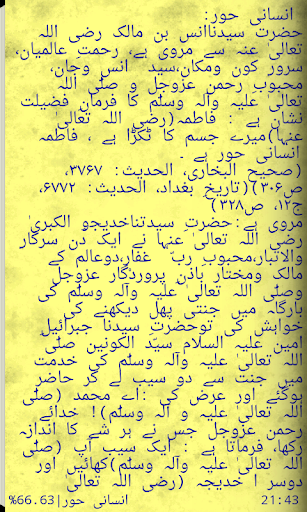 انسانی حور:
حضرت سیدناانس بن مالک رضی اللہ
تعالیٰ عنہ سے مروی ہے، رحمت عالمیان،
سرور کون ومکان،سید انس وجان،
محبوب رحمن عزوجل و صلَّی اللہ
تعالیٰ علیہ وآلہ وسلَّم کا فرمانِ فضیلت
نشان ہے : فاطمہ(رضی اللہ تعالیٰ
عنہا)میرے جسم کا ٹکڑا ہے ، فاطمہ
انسانی حور ہے ۔
(صحیح البخاری، الحدیث: ۳۷۶۷،
ص۳۰۶)(تاریخ بغداد، الحدیث: ۶۷۷۲،
ج۱۲، ص۳۲۸)
مروی ہے:حضرتِ سیدتناخدیجو الکبریٰ
رضی اللہ تعالیٰ عنہا نے ایک دن سرکار
والاتبار،محبوبِ ربِّ غفار،دوعالم کے
مالک ومختار باذنِ پروردگار عزوجل
وصلَّی اللہ تعالیٰ علیہ وآلہ وسلَّم کی
بارگاہ میں جنتی پھل دیکھنے کی
خواہش کی توحضرتِ سیدنا جبرائیل
امین علیہ السلام سید الکونین صلَّی
اللہ تعالیٰ علیہ وآلہ وسلَّم کی خدمت
میں جنت سے دو سیب لے کر حاضر
ہوگئے اور عرض کی :اے محمد (صلَّی
اللہ تعالیٰ علیہ و آلہ وسلَّم)! خدائے
رحمن عزوجل جس نے ہر شے کا اندازہ
رکھا، فرماتا ہے : ایک سیب آپ (صلَّی
اللہ تعالیٰ علیہ وآلہ وسلَّم)کھائیں اور
دوسر ا خدیجہ (رضی اللہ تعالیٰ
انسانی حور|66.63% 21:43